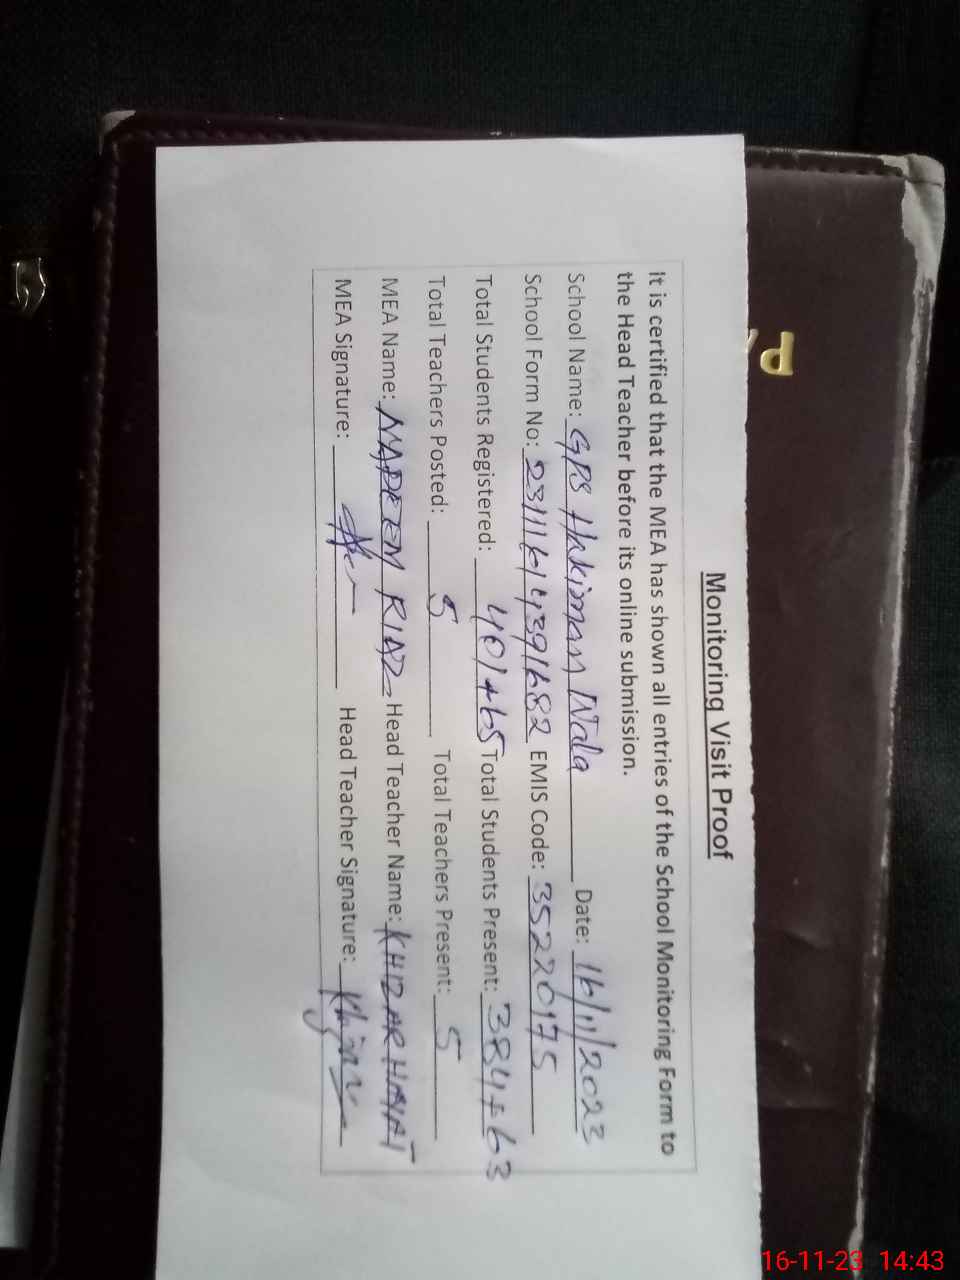 Monitoring Visit Proof
It is certified that the MEA has shown all entries of the School Monitoring Form to
the Head Teacher before its online submission.
School Name: GPS Hakiman Wala Date: 16/11/2023
School Form No: 23111614391682 EMIS Code: 35220175
Total Students Registered: 401+65 Total Students Present: 384+63
Total Teachers Posted: 5 Total Teachers Present: 5
MEA Name: NADEEM RIAZ Head Teacher Name: KHIZAR HAYAT
MEA Signature: Head Teacher Signature:
16-11-23 14:43